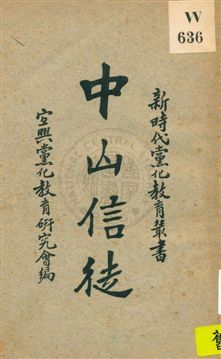 W
636
新時代黨化教育叢書
中山信徒
宜興黨化教育研究會編